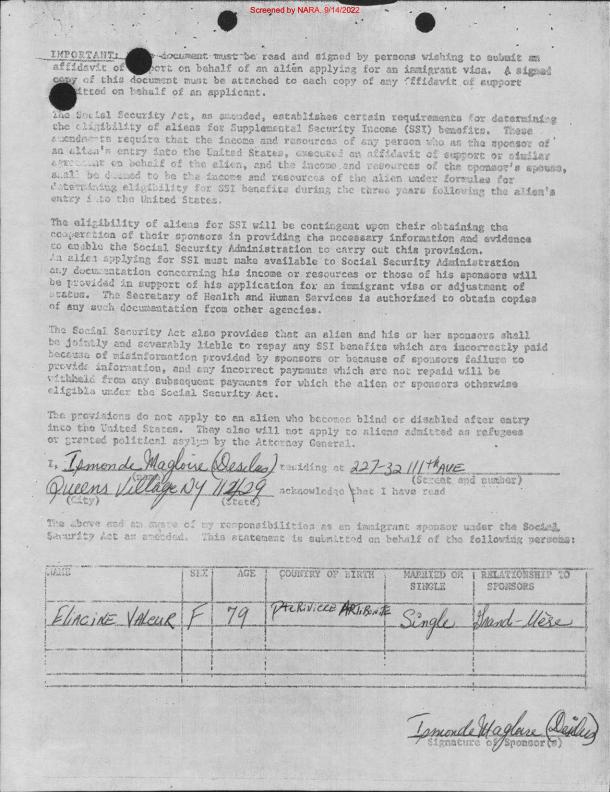 Screened by NARA, 9/14/2022
IMPORTANT: document must be read and signed by persons wishing to submit an
affidavit of on behalf of an alien applying for an immigrant visa. A signed
copy of this document must be attached to each copy of any affidavit of support
on behalf of an applicant.
The Social Security Act, as amended, establishes certain requirements for determining
the eligibility of aliens for Supplemental Security Income (SSI) benefits. These
amendments require that the income and resources of any person who as the sponsor of
an alien's entry into the United States, executed an affidavit of support or similar
agreement on behalf of the alien, and the income and resources of the sponsor's spouse,
shall be deemed to be the income and resources of the alien under formulas for
determining eligibility for SSI benefits during the three years following the alien's
entry into the United States.
The eligibility of aliens for SSI will be contingent upon their obtaining the
cooperation of their sponsors in providing the necessary information and evidence
to enable the Social Security Administration to carry out this provision.
An alien applying for SSI must make available to Social Security Administration
any documentation concerning his income or resources or those of his sponsors will
be provided in support of his application for an immigrant visa or adjustment of
status. The Secretary of Health and Human Services is authorized to obtain copies
of any such documentation from other agencies.
The Social Security Act also provides that an alien and his or her sponsors shall
be jointly and severably liable to repay any SSI benefits which are incorrectly paid
because of misinformation provided by sponsors or because of sponsors failure to
provide information, and any incorrect payments which are not repaid will be
withheld from any subsequent payments for which the alien or sponsors otherwise
eligible under the Social Security Act.
The provisions do not apply to an alien who becomes blind or disabled after entry
into the United States. They also will not apply to aliens admitted as refugees
or granted political asylum by the Attorney General.
I, Ismonde Magloire (Desilus) residing at 227-32 111th AVE
(Name) (Street and number)
Queens Village NY 11429 acknowledge that I have read
(City) (State)
The above and am aware of my responsibilities as an immigrant sponsor under the Social
Security Act as amended. This statement is submitted on behalf of the following persons:
NAME SEX AGE COUNTRY OF BIRTH MARRIED OR SINGLE RELATIONSHIP TO SPONSORS
ELIACINE VALCUR F 79 Single Grand-Mère
Ismonde Magloire (Desilus)
Signature of Sponsor(s)